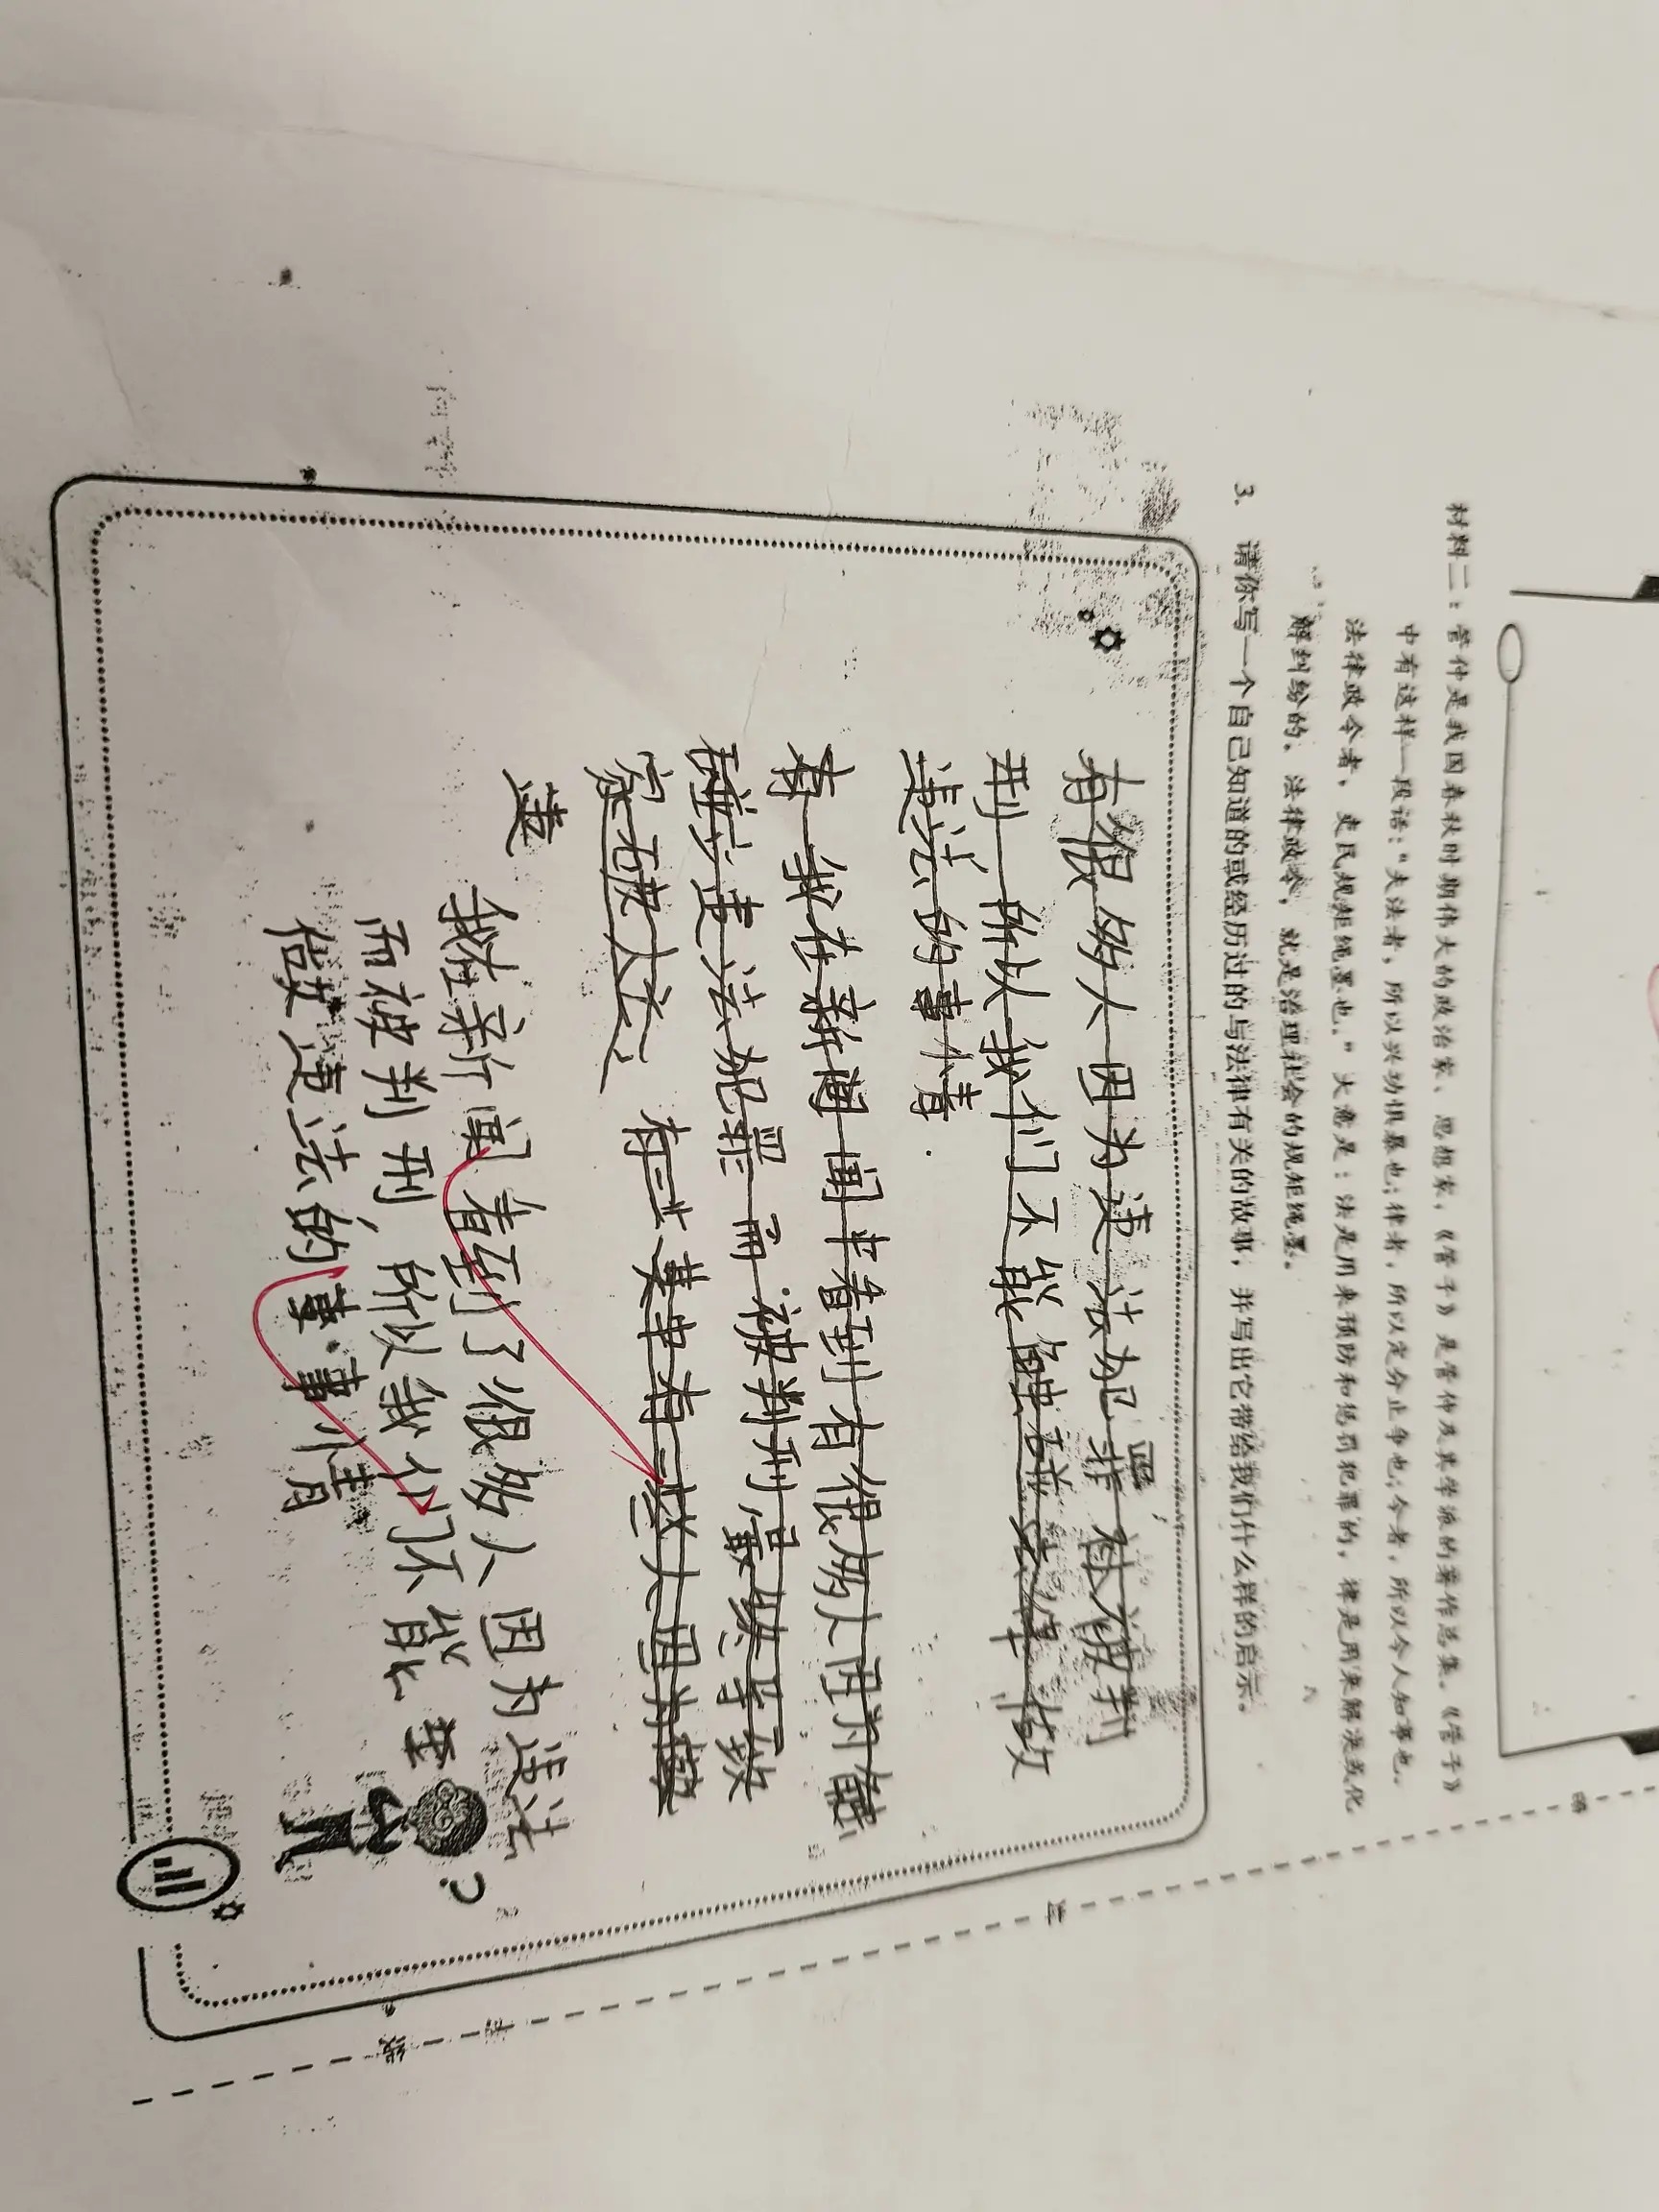 材料二：管仲是我国春秋时期伟大的政治家、思想家，《管子》是管仲及其学派的著作总集。《管子》
中有这样一段话：“夫法者，所以兴功惧暴也；律者，所以定分止争也；令者，所以令人知事也。
法律政令者，吏民规矩绳墨也。”大意是：法是用来预防和惩罚犯罪的，律是用来解决或化
解纠纷的。法律政令，就是治理社会的规矩绳墨。
3. 请你写一个自己知道的或经历过的与法律有关的故事，并写出它带给我们什么样的启示。
有很多人因为违法犯罪 被判
刑，所以我们不能 做
违法的事情
有 我在新闻 看到有很多人因为
违法犯罪而被判刑，最终导致
家破人亡 有些 有一些人因为
违
我在新闻看到了很多人因为违法
而被判刑，所以我们不能 去
做违法的事 事情
线